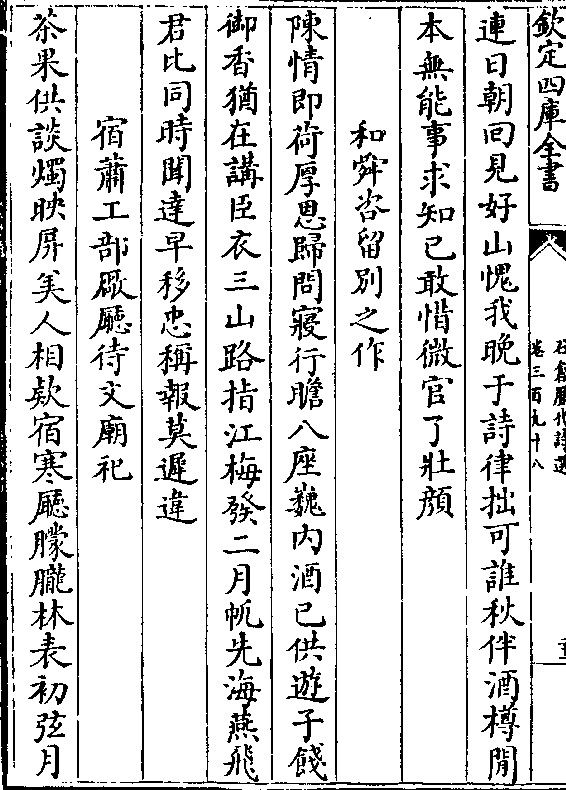 欽定四庫全書
石倉歷代詩選
卷三百九十八
連日朝回見好山愧我晚于詩律拙可誰秋伴酒樽閒
本無能事求知已敢惜微官了壯顏
和舜咨留別之作
陳情即荷厚恩歸問寢行瞻八座巍內酒已供遊子餞
御香猶在講臣衣三山路指江梅發二月帆先海燕飛
君比同時聞達早移忠稱報莫遲違
宿蕭工部厰廳待文廟祀
茶果供談燭映屏美人相欵宿寒廳朦朧林表初弦月